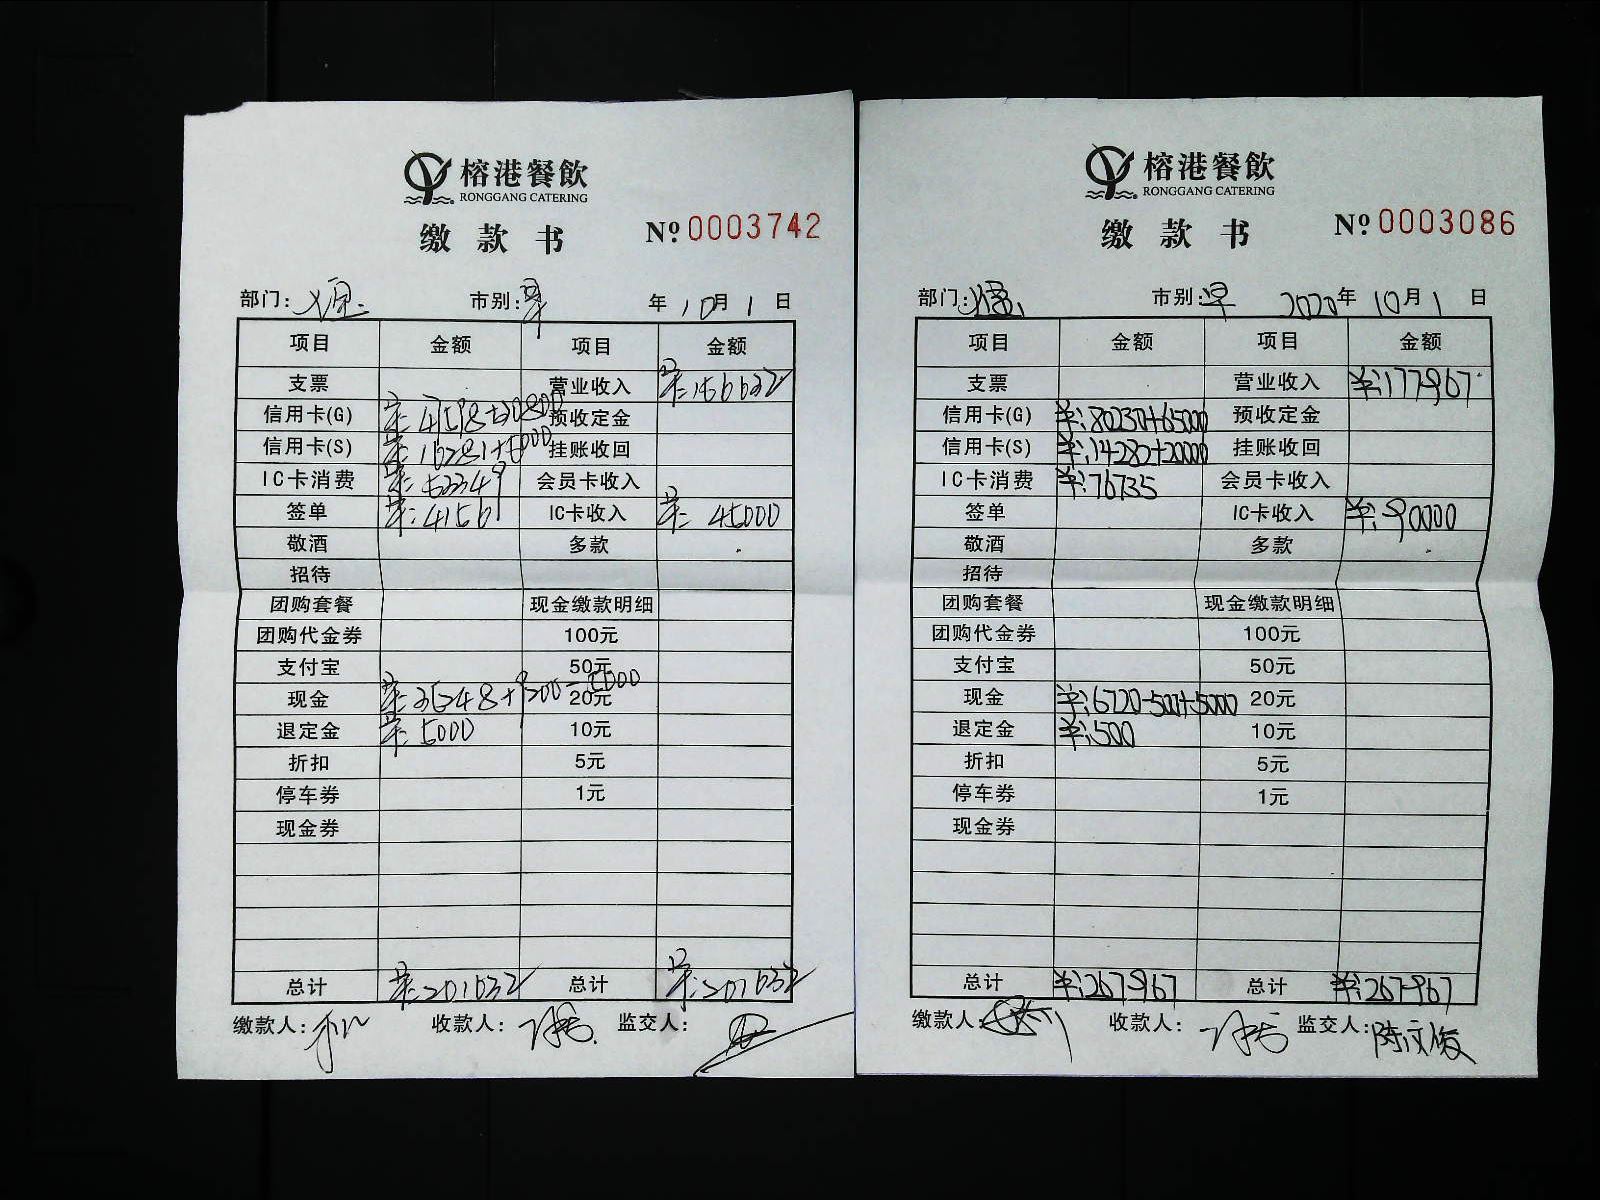 榕港餐飲
RONGGANG CATERING
缴款书
№ 0003742
部门: 市别: 年 10月 1 日
项目 金额 项目 金额
支票 营业收入 156632
信用卡(G) 预收定金
信用卡(S) 挂账收回
IC卡消费 会员卡收入
签单 IC卡收入 45000
敬酒 多款
招待
团购套餐 现金缴款明细
团购代金券 100元
支付宝 50元
现金 20元
退定金 5000 10元
折扣 5元
停车券 1元
现金券
总计 201632 总计 201632
缴款人: 收款人: 监交人:
榕港餐飲
RONGGANG CATERING
缴款书
№ 0003086
部门: 市别: 早 2020年 10月 1 日
项目 金额 项目 金额
支票 营业收入 ¥:177967
信用卡(G) ¥:80230+65000 预收定金
信用卡(S) ¥:14282+20000 挂账收回
IC卡消费 ¥:76735 会员卡收入
签单 IC卡收入 ¥:90000
敬酒 多款
招待
团购套餐 现金缴款明细
团购代金券 100元
支付宝 50元
现金 ¥:6720-500+5000 20元
退定金 ¥:500 10元
折扣 5元
停车券 1元
现金券
总计 ¥:267967 总计 ¥:267967
缴款人: 收款人: 监交人: 陈文俊